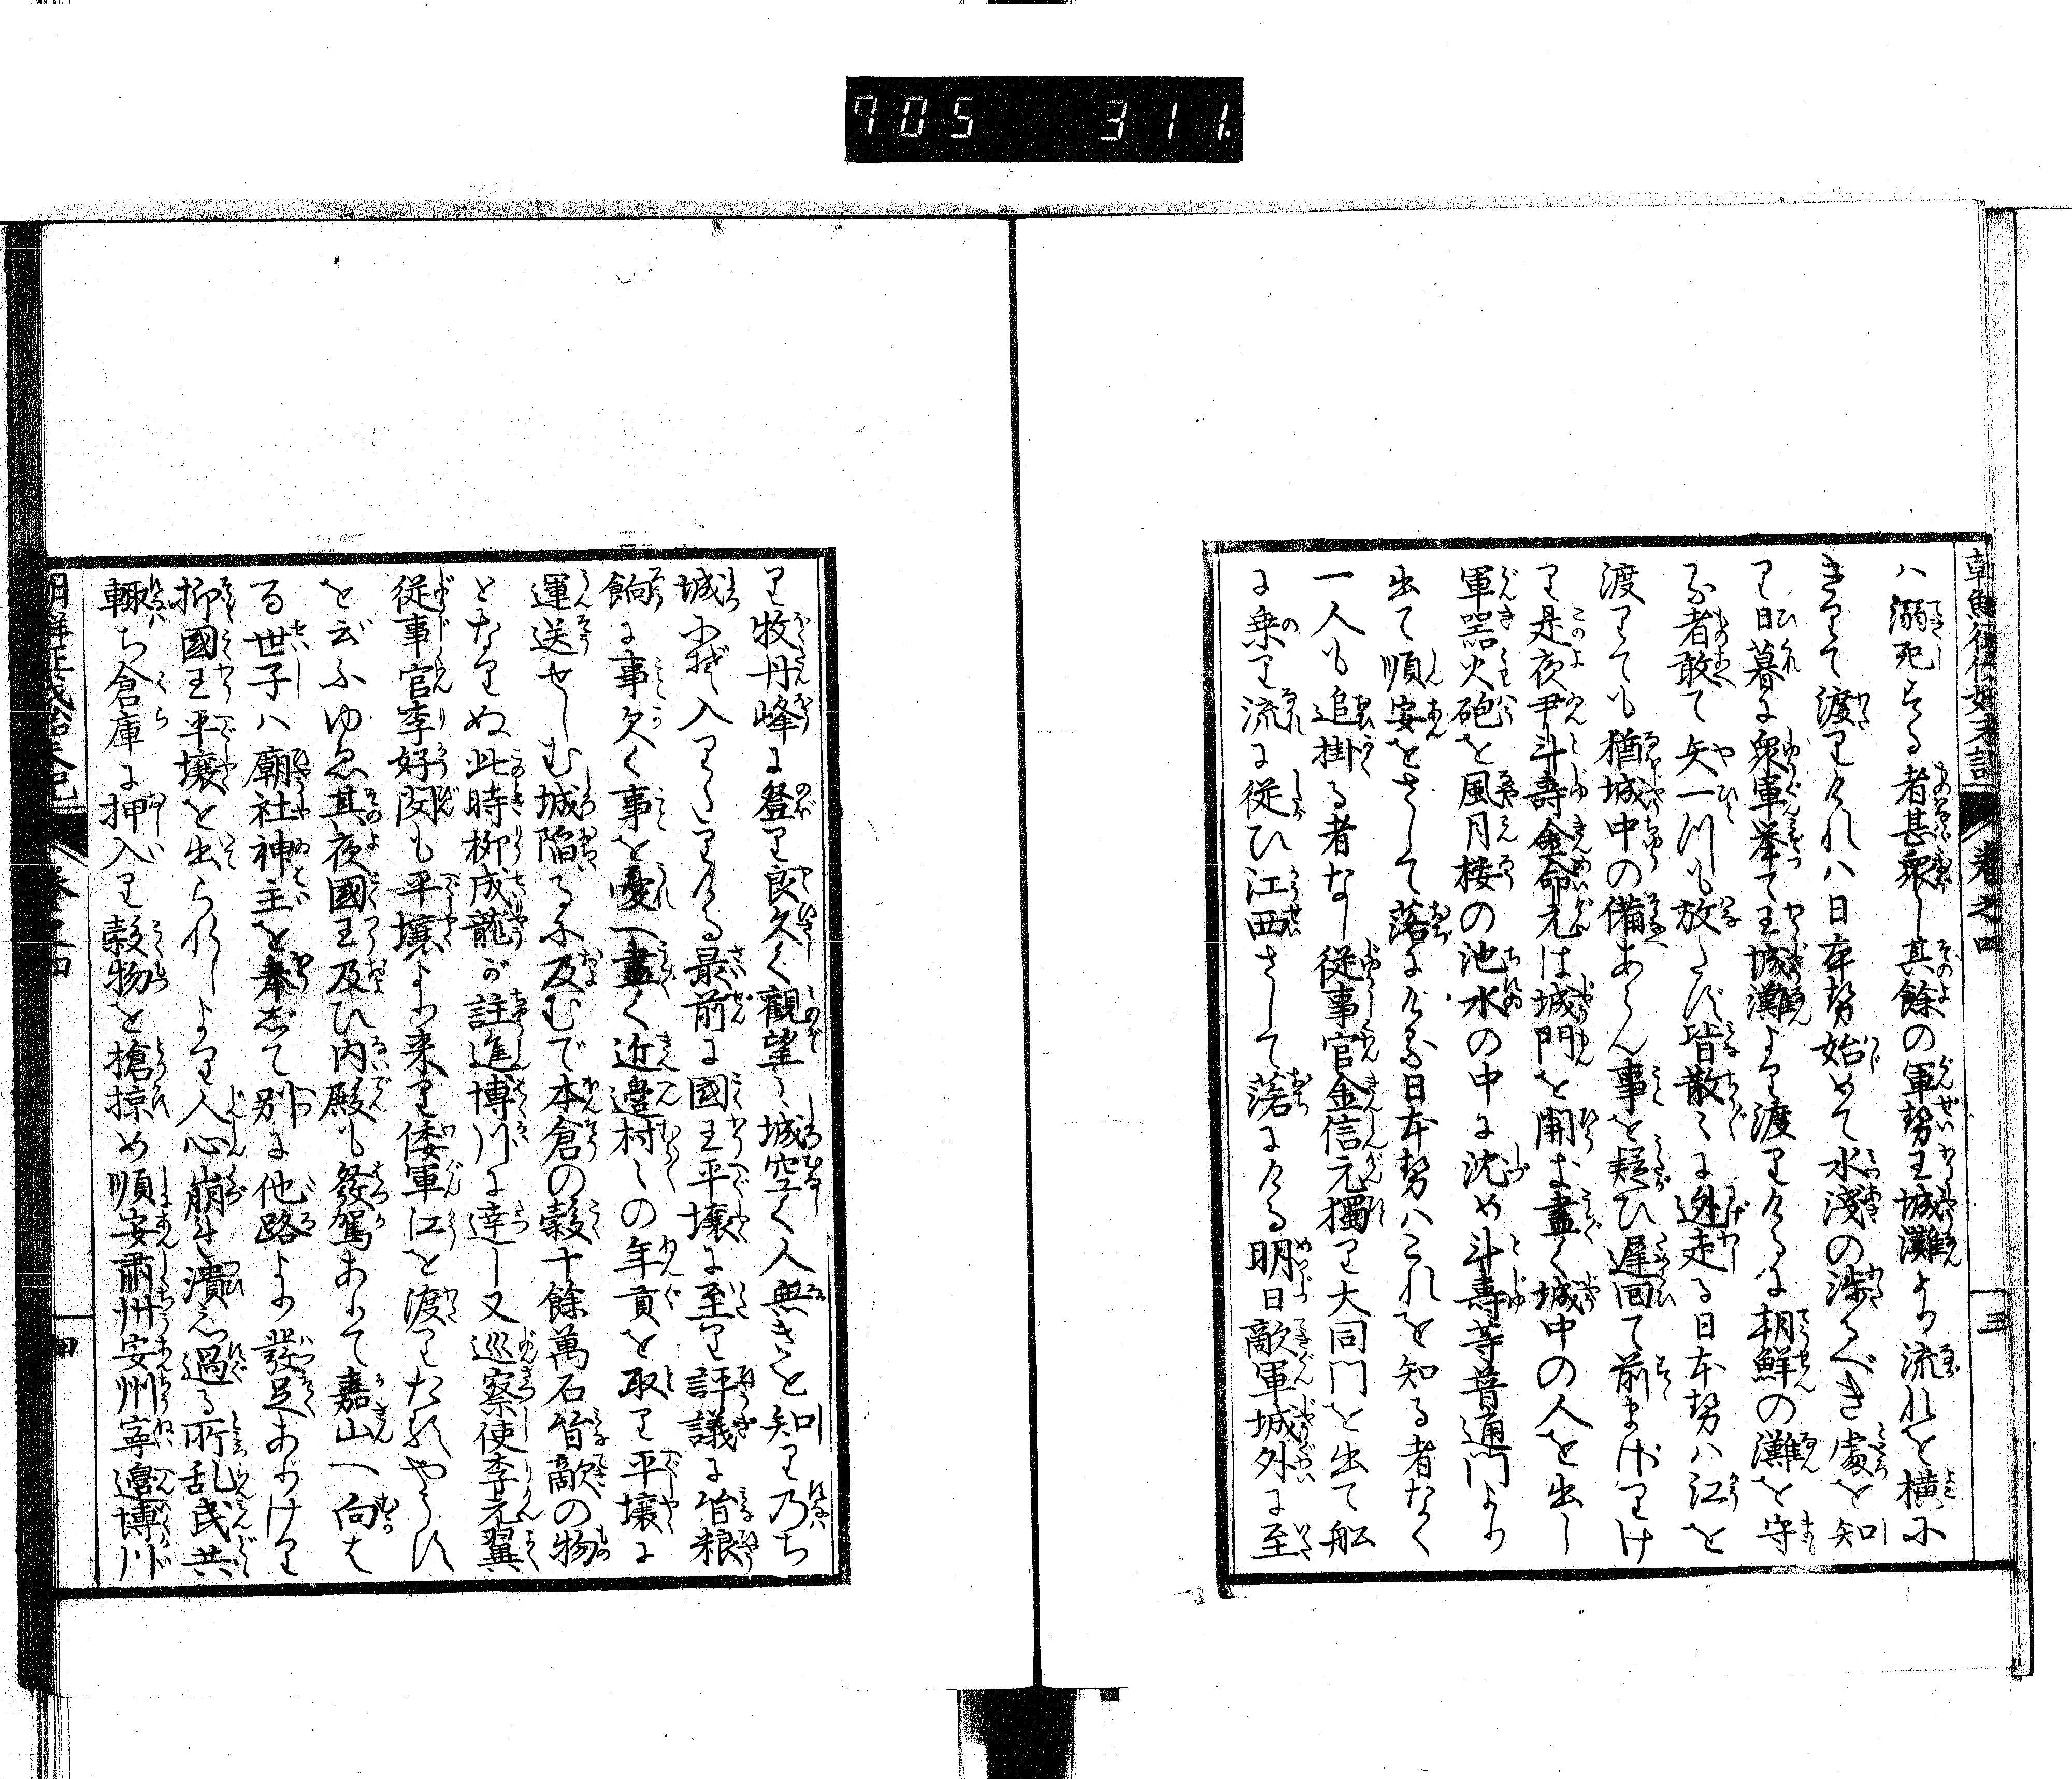 705 311.
朝鮮征伐始末記 巻之四 三
ハ溺死する者甚衆し其餘の軍勢王城灘より流れを横に
きりて渡りけれハ日本勢始めて水淺の渉るべき處を知
り日暮に衆軍挙て王城灘より渡りけるに朝鮮の灘を守
る者敢て矢一川も放たず皆散々に迯走る日本勢ハ江を
渡りても猶城中の備あらん事を疑ひ遅回て前まざりけ
り是夜尹斗壽金命元は城門を開き盡く城中の人を出し
軍噐火砲を風月楼の池水の中に沈め斗壽等普通門より
出て順安をさして落にける日本勢ハこれを知る者なく
一人も追掛る者なし従事官金信元獨り大同門を出て舩
に乗り流に従ひ江西さして落にける明日敵軍城外に至
り牧丹峰に登り良久く觀望し城空く人無きを知り乃ち
城にぞ入りたりける最前に國王平壌に至り評議に皆粮
餉に事欠く事を憂へ盡く近邊村々の年貢を取り平壌に
運送せしむ城陥るに及むで本倉の穀十餘萬石皆敵の物
となりぬ此時柳成龍が註進博川に達し又巡察使李元翼
従事官李好閔も平壌より来り倭軍江を渡りたるやうす
を云ふゆゑ其夜國王及ひ内殿も發駕ありて嘉山へ向は
る世子ハ廟社神主を奉じて別に他路より發足ありけり
抑國王平壌を出られしより人心崩れ潰え過る所乱民共
輙ち倉庫に押入り穀物を搶掠め順安肅州安州寧邊博川
朝鮮征伐始末記 巻之四 四